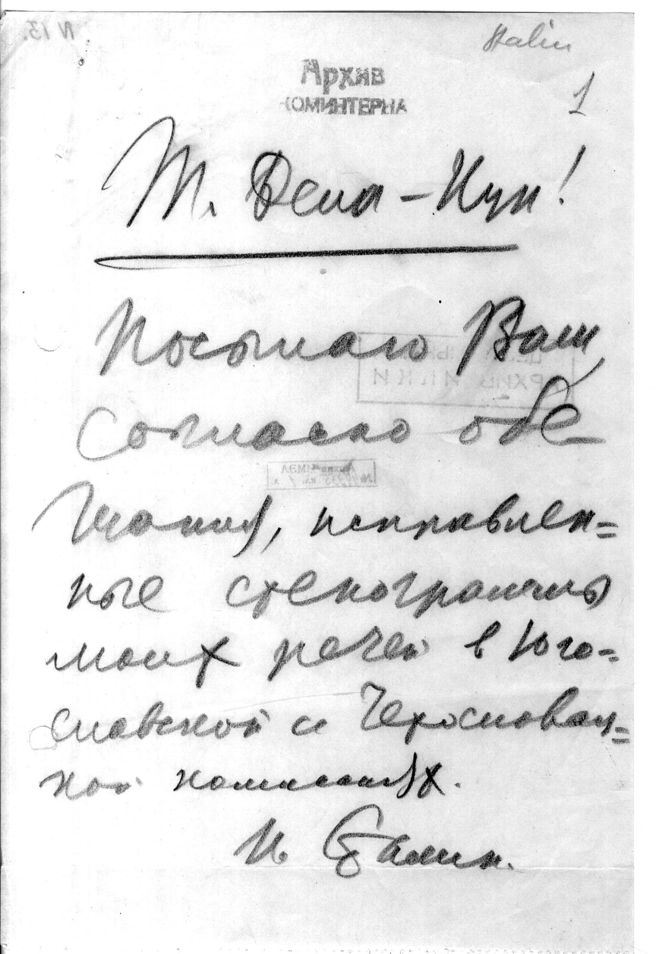 N 13.
Stalin
Архив
КОМИНТЕРНА
1
Т. Бела-Кун!
Посылаю Вам,
согласно обе
щания, исправлен=
ные стенограммы
моих речей в Юго-
славской и Чехословац=
кой комиссиях.
И Сталин.